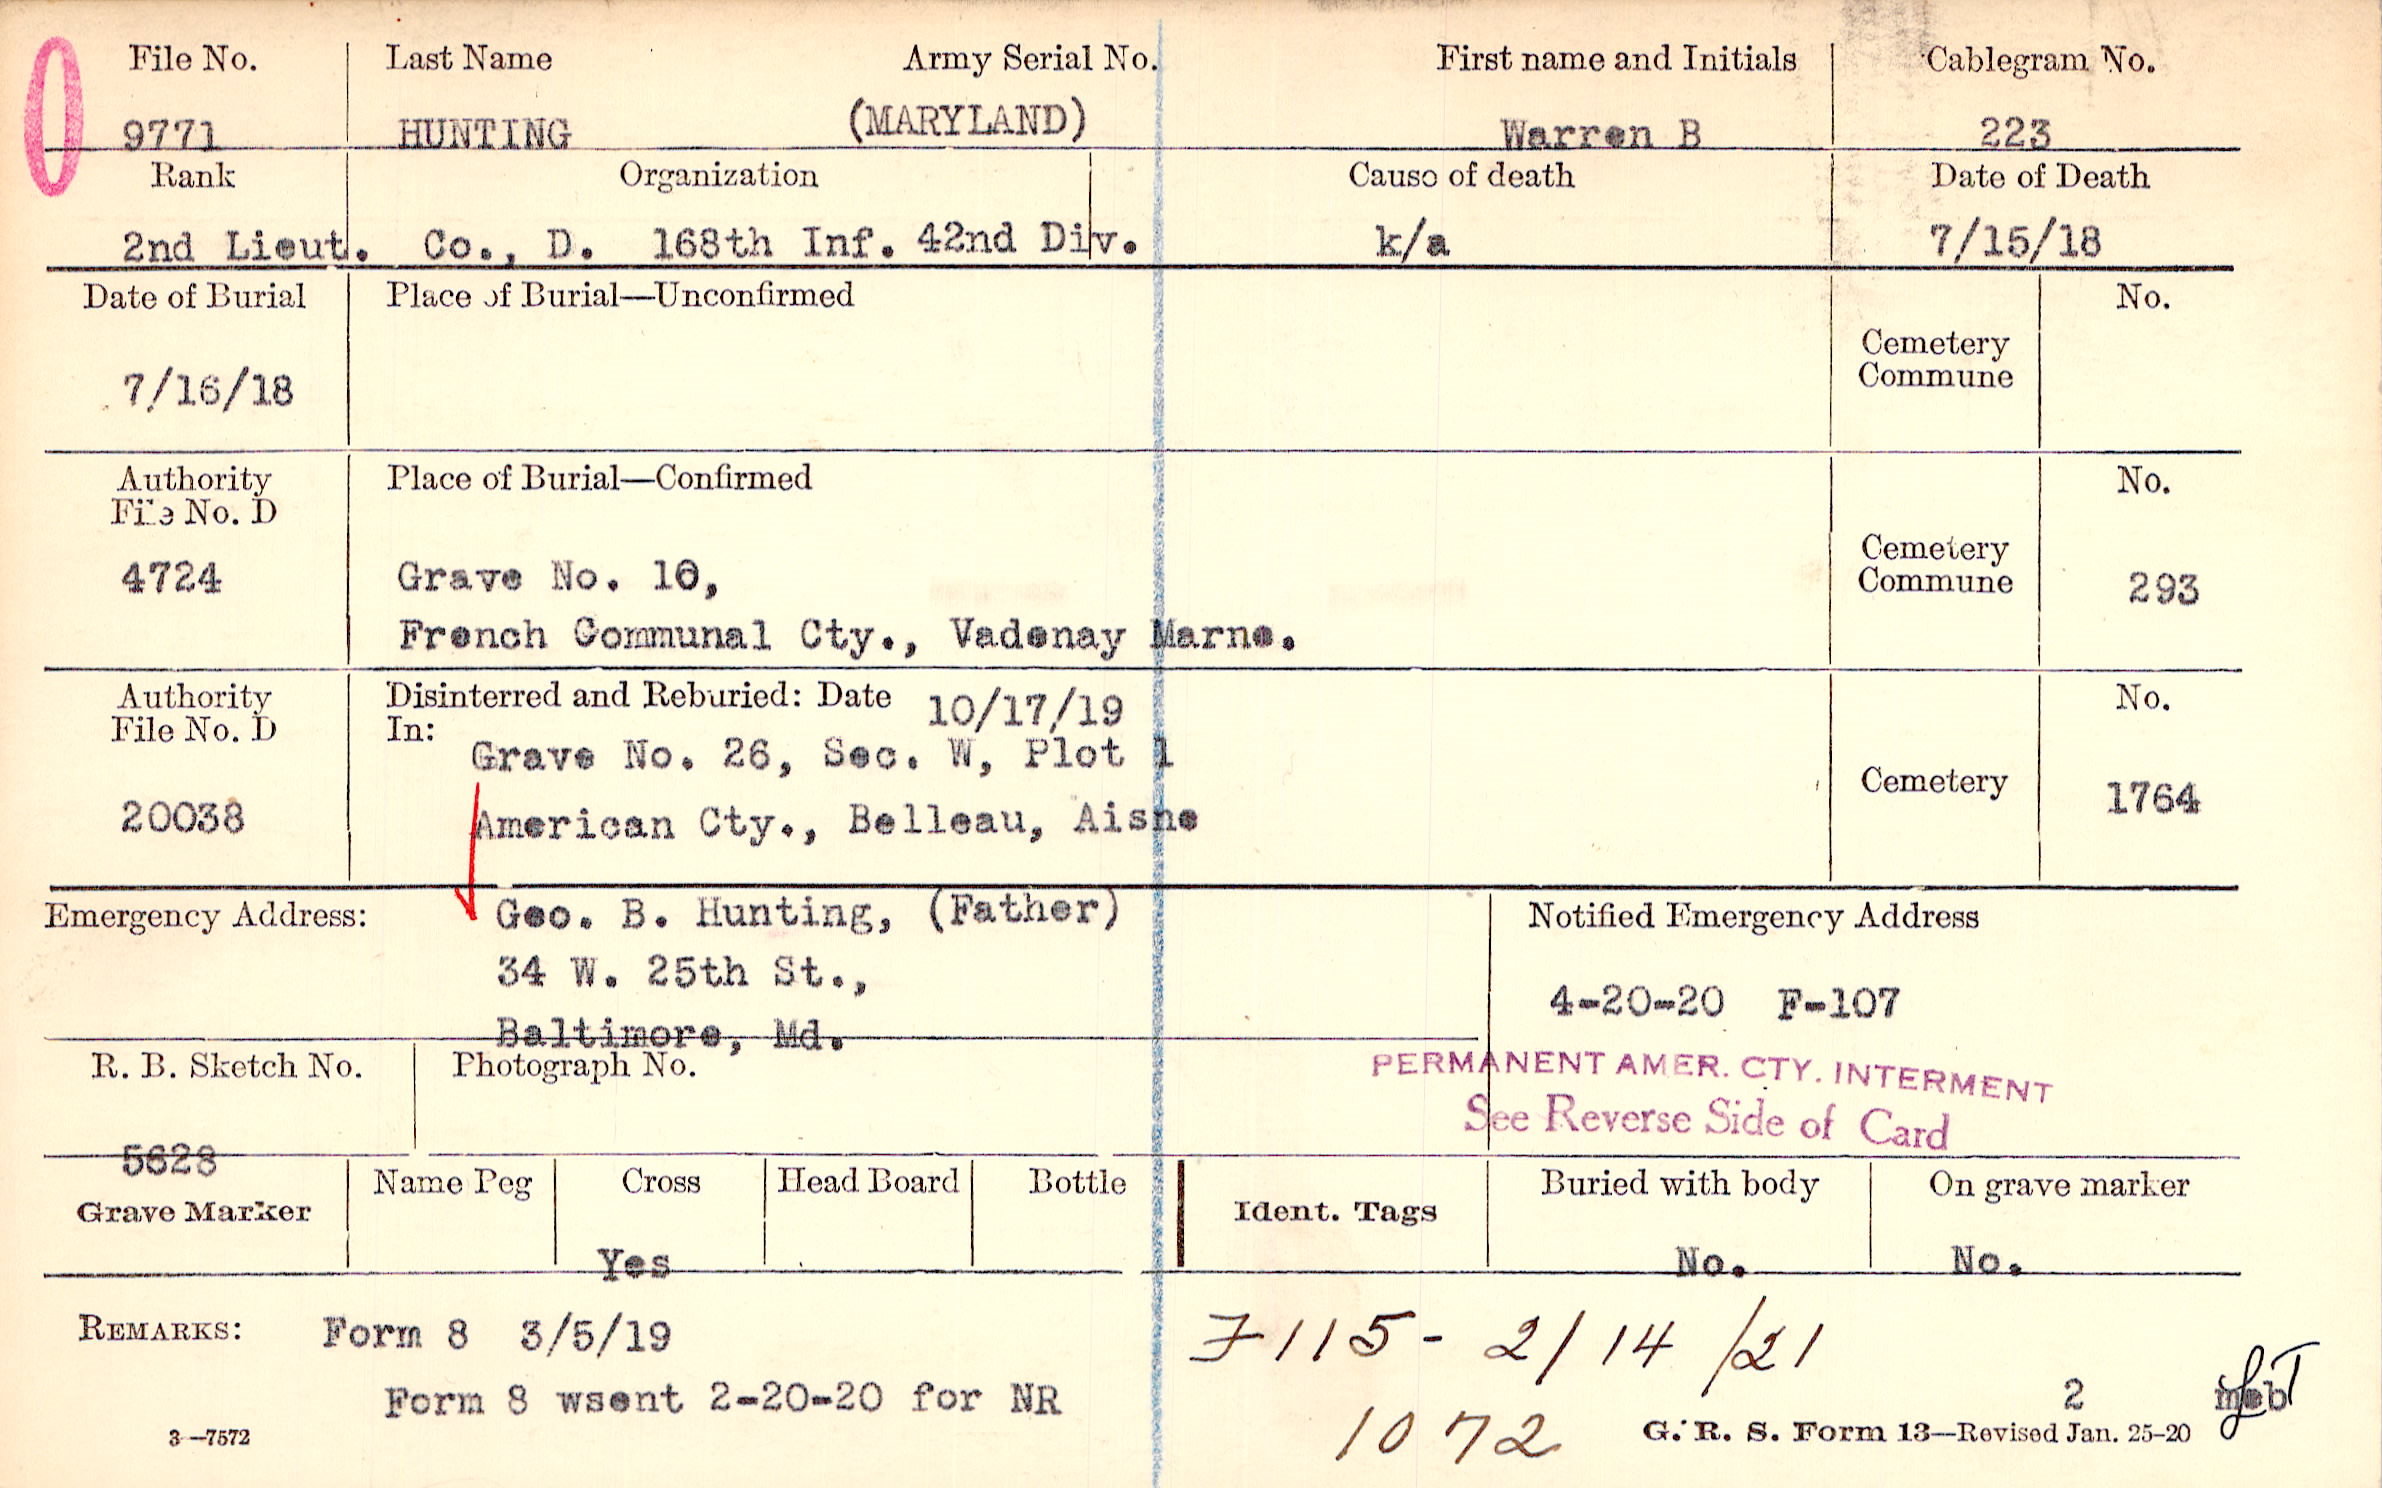 File No. Last Name Army Serial No. First name and Initials Cablegram No.
9771 HUNTING (MARYLAND) Warren B 223
Rank Organization Cause of death Date of Death
2nd Lieut. Co., D. 168th Inf. 42nd Div. k/a 7/15/18
Date of Burial Place of Burial—Unconfirmed No.
Cemetery
Commune
7/16/18
Authority Place of Burial—Confirmed No.
File No. D
Cemetery
Commune
4724 Grave No. 10, 293
French Communal Cty., Vadenay Marne.
Authority Disinterred and Reburied: Date 10/17/19 No.
File No. D In:
Grave No. 26, Sec. W, Plot 1
Cemetery 1764
20038 American Cty., Belleau, Aisne
Emergency Address: Geo. B. Hunting, (Father) Notified Emergency Address
34 W. 25th St.,
4-20-20 F-107
Baltimore, Md.
R. B. Sketch No. Photograph No. PERMANENT AMER. CTY. INTERMENT
See Reverse Side of Card
5628
Grave Marker Name Peg Cross Head Board Bottle Ident. Tags Buried with body On grave marker
Yes No. No.
REMARKS: Form 8 3/5/19 F115- 2/14/21
Form 8 wsent 2-20-20 for NR 2 meb
1072
3—7572 G. R. S. Form 13—Revised Jan. 25-20